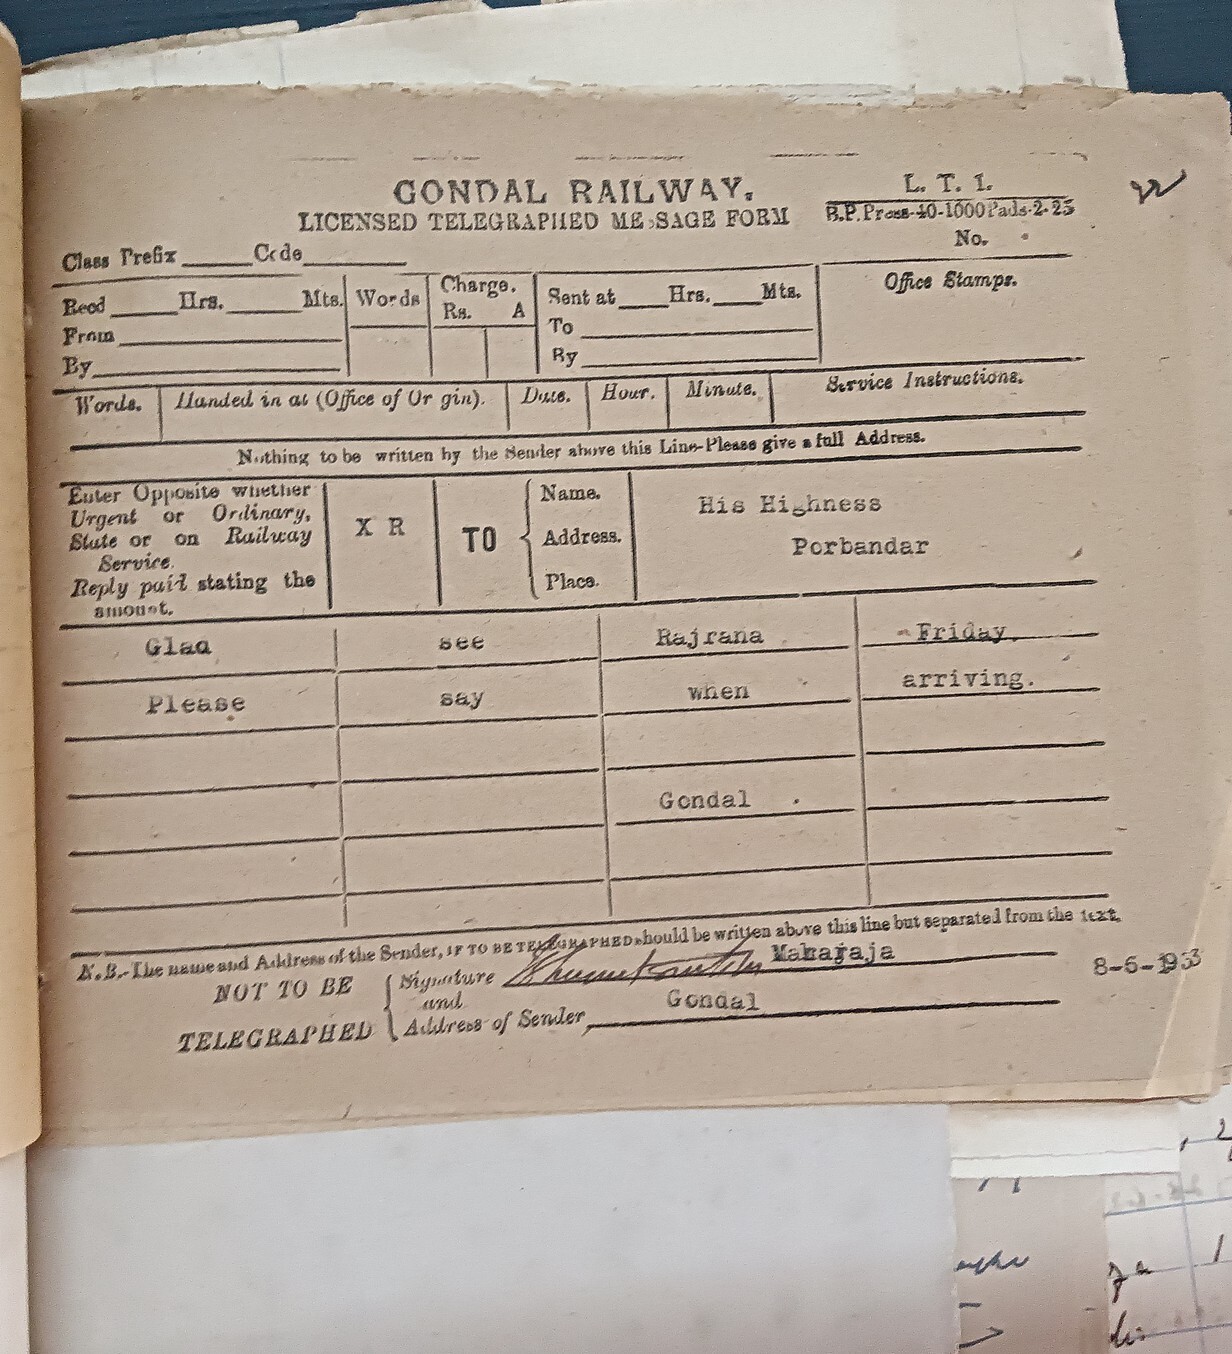 GONDAL RAILWAY.
LICENSED TELEGRAPHED MESSAGE FORM
L. T. I.
B.P.Press-40-1000 Pads-2-25
No.
Class Prefix Code
Recd Hrs. Mts.
From
By
Words
Charge.
Rs. A
Sent at Hrs. Mts.
To
By
Office Stamps.
Words. Handed in at (Office of Or gin). Date. Hour. Minute. Service Instructions.
Nothing to be written by the Sender above this Line-Please give a full Address.
Enter Opposite whether
Urgent or Ordinary,
State or on Railway
Service.
Reply paid stating the
amount.
X R
TO
Name.
Address.
Place.
His Highness
Porbandar
Glad see Rajrana Friday.
Please say when arriving.
Gondal
N.B.-The name and Address of the Sender, IF TO BE TELEGRAPHED should be written above this line but separated from the text.
NOT TO BE
TELEGRAPHED
Signature
and
Address of Sender
Maharaja
Gondal
8-6-1933